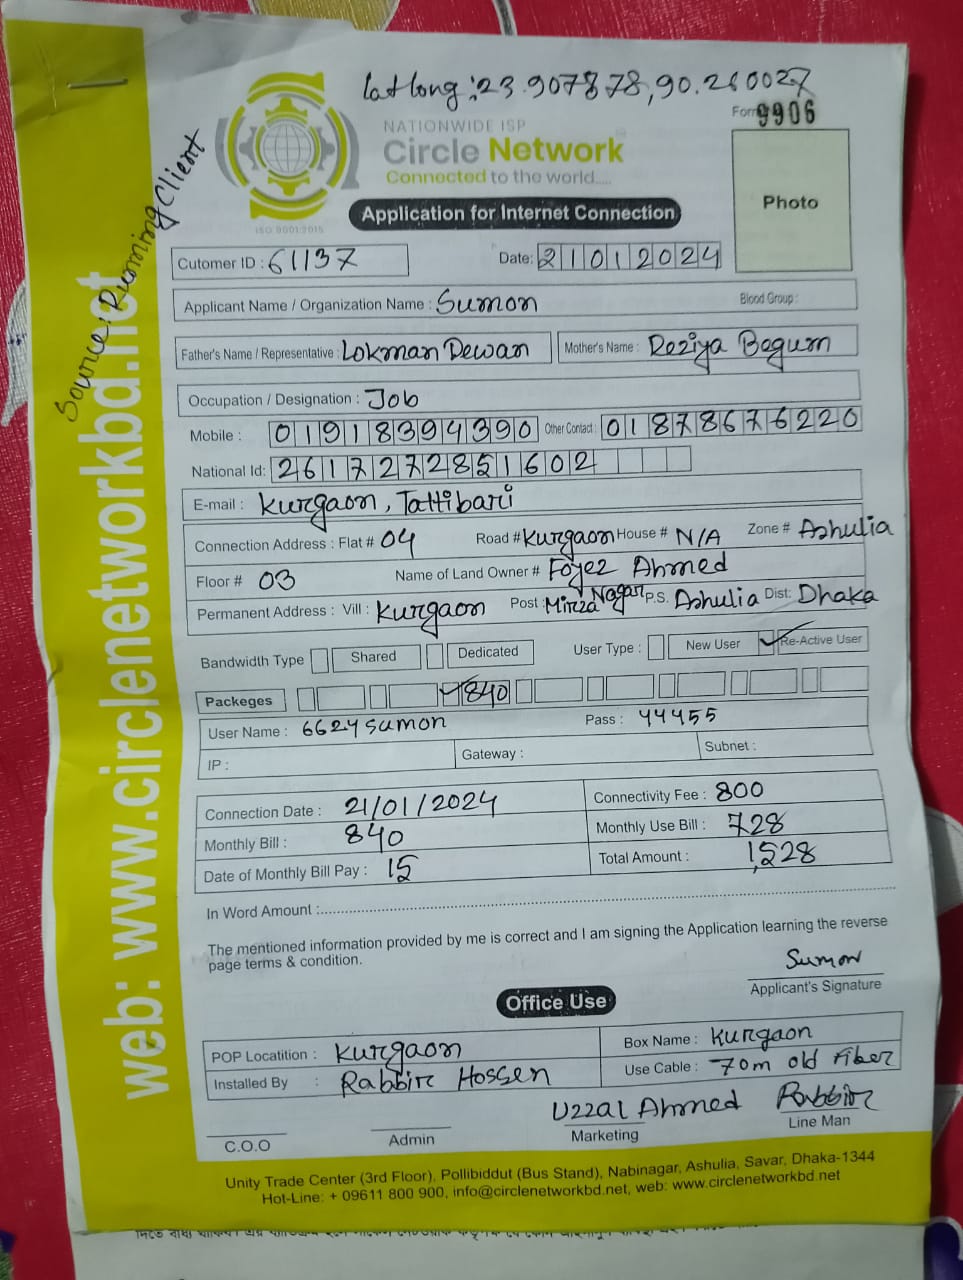 Lat long : 23.907878, 90.260027
Form 9906
NATIONWIDE ISP
Circle Network
Connected to the world....
ISO 9001:2015
Photo
Application for Internet Connection
Source: Running Client
web: www.circlenetworkbd.net
Cutomer ID : 61137 Date: 21012024
Applicant Name / Organization Name : Sumon Blood Group :
Father's Name / Representative : Lokman Dewan Mother's Name : Reziya Begum
Occupation / Designation : Job
Mobile : 01918394390 Other Contact : 01878676220
National Id: 2617272851602
E-mail : Kurgaon, Tattibari
Connection Address : Flat # 04 Road # Kurgaon House # N/A Zone # Ashulia
Floor # 03 Name of Land Owner # Foyez Ahmed
Permanent Address : Vill : Kurgaon Post : Mirza Nagar P.S. Ashulia Dist: Dhaka
Bandwidth Type Shared Dedicated User Type : New User Re-Active User
Packeges 840
User Name : 6624sumon Pass : 44455
IP : Gateway : Subnet :
Connection Date : 21/01/2024 Connectivity Fee : 800
Monthly Bill : 840 Monthly Use Bill : 728
Date of Monthly Bill Pay : 15 Total Amount : 1,528
In Word Amount :
The mentioned information provided by me is correct and I am signing the Application learning the reverse
page terms & condition.
Sumon
Applicant's Signature
Office Use
POP Locatition : Kurgaon Box Name : Kurgaon
Installed By : Rabbir Hossen Use Cable : 70m old Fiber
Uzzal Ahmed Rabbir
C.O.O Admin Marketing Line Man
Unity Trade Center (3rd Floor), Pollibiddut (Bus Stand), Nabinagar, Ashulia, Savar, Dhaka-1344
Hot-Line: + 09611 800 900, info@circlenetworkbd.net, web: www.circlenetworkbd.net